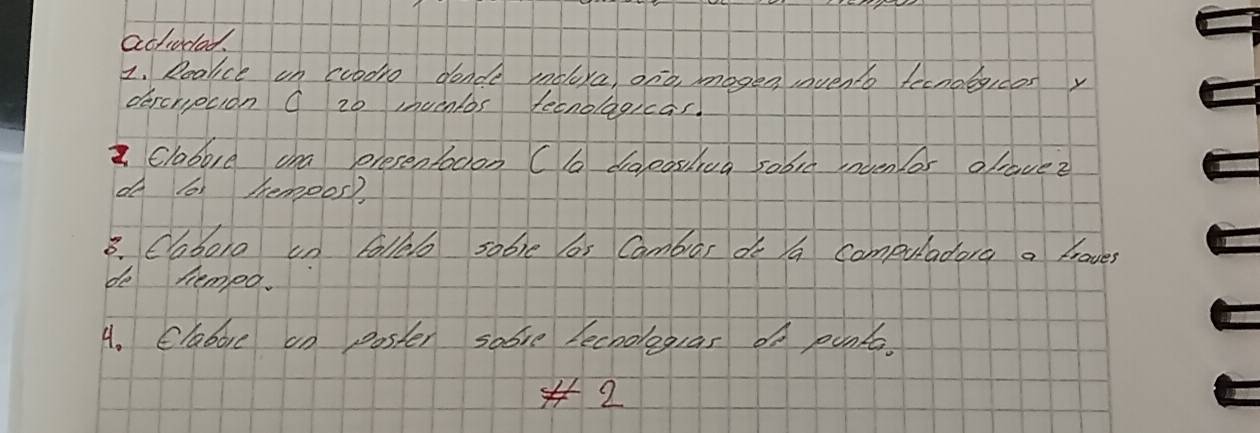 actividad.
1. Realice un cuadro donde incluya, año, imagen, invento tecnologicos y
descripcion ( 20 inventos tecnologicas.
2. Elabore una presentacion ( la diapositiva sobre inventos atravez
de los tiempos).
3. Elabora un folleto sobre los Cambios de la computadora a traves
de tiempo.
4. Elabore un poster sobre tecnologias de punta.
# 2